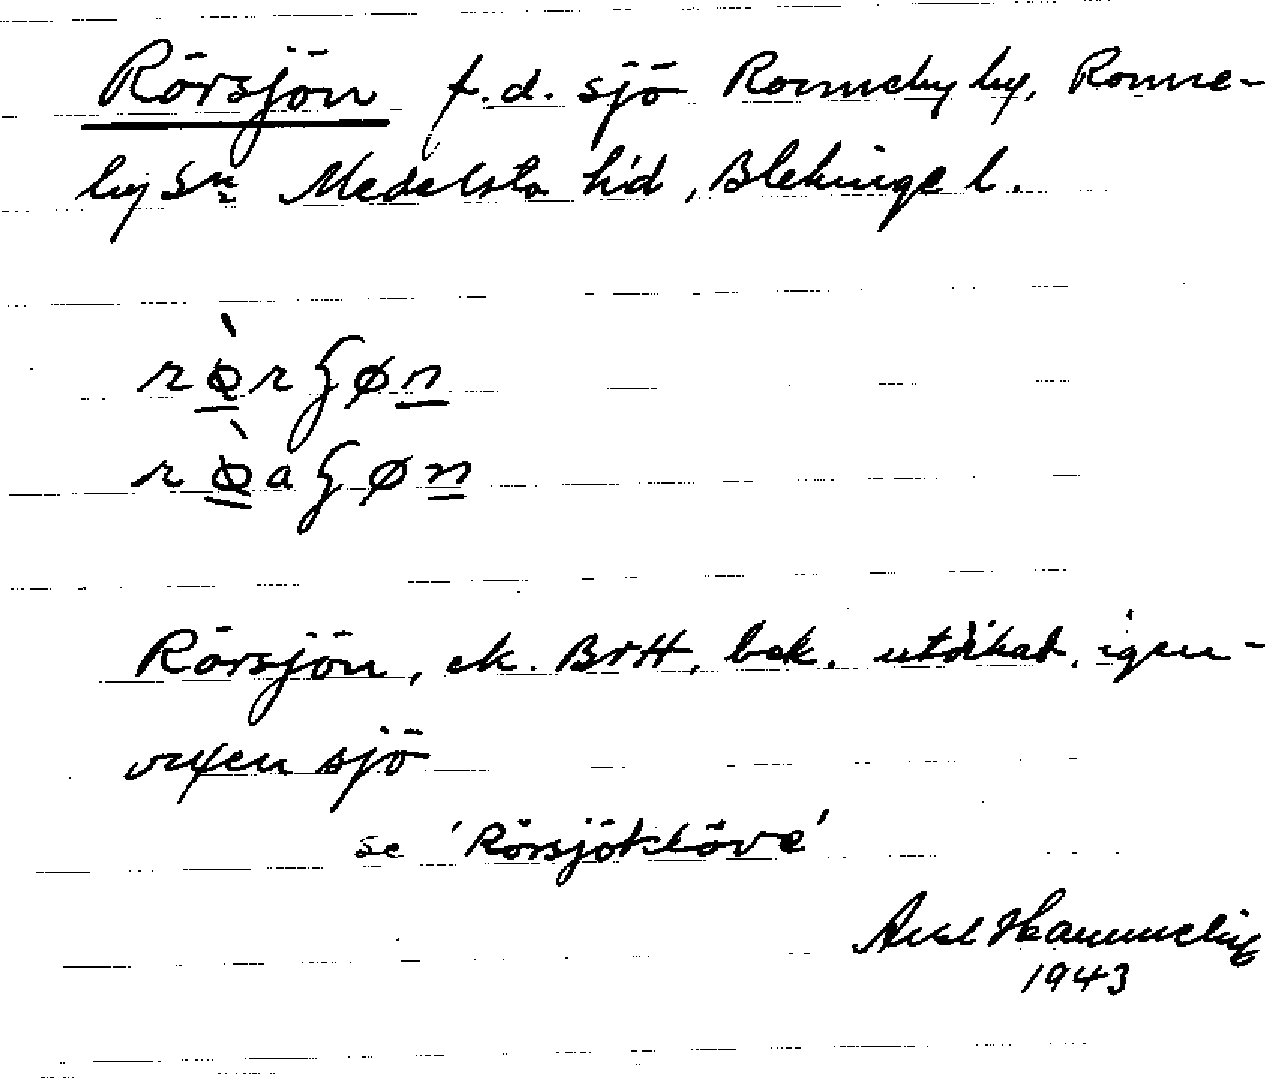 Rörsjön f.d. sjö Ronneby by, Ronne-
by Sn Medelsta hd, Blekinge l.
rø̀rʃøn
rø̀aʃøn
Rörsjön, ek. BrH, bek. utdikat, igen-
vuxen sjö
se 'Rörsjöklöve'
Axel
1943